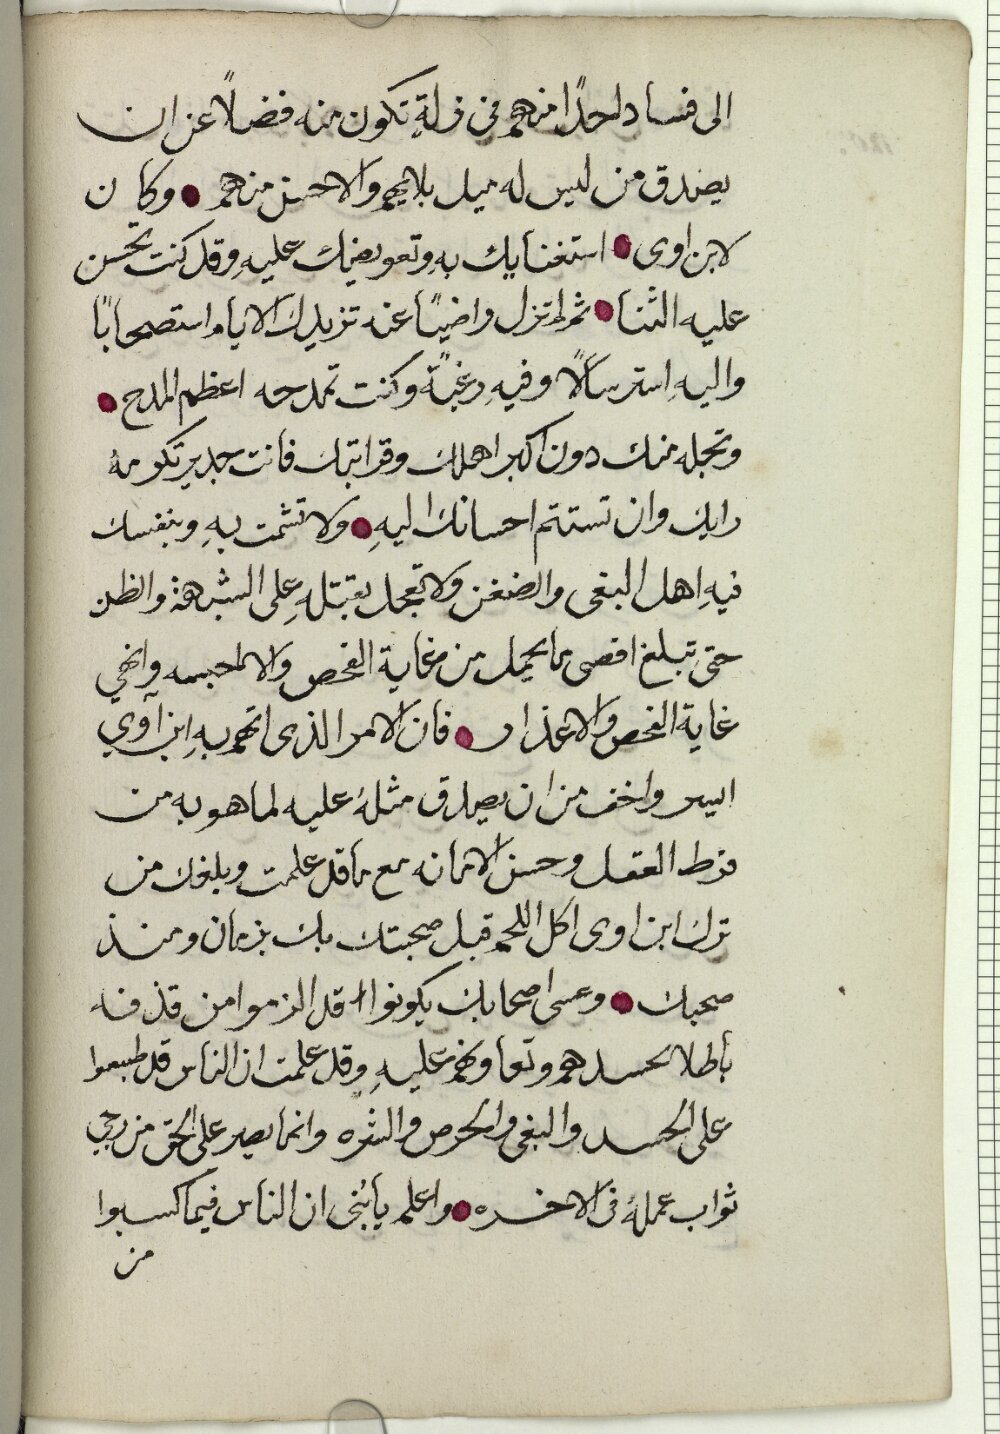 الى فساد لاحدًا منهم فى زلةٍ تكون منه فضلًا عن ان
يصدق من ليس له ميل بلايهم والاحسن منهم • وكان
لابن اوى • استغنايك بهِ وتعويضك عليهِ وقد كنت تحسن
عليه الثنا • ثم لم تزل راضيًا عنه تزيدك الايام استصحابًا
واليهِ استرسالًا وفيهِ رغبةً وكنت تمدحه اعظم المدح •
وتجله منك دون اكبر اهلك وقرابتك فانت جدير تكرمة
رايك وان تستتم احسانك اليهِ • ولا تشمت بهِ وبنفسك
فيهِ اهل البغى والضغن ولا تعجل بقتلهِ على الشبهة والظن
حتى تبلغ اقصى ما يحمل من غاية الفحص والا احبسه وانهي
غاية الفحص والاعذار • فان الامر الذى اتهم بهِ ابن آوي
ايسر واخف من ان يصدق مثلهُ عليه لما هو به من
فرط العقل وحسن الامانه مع ما قد علمت وبلغك من
ترك ابن اوى اكل اللحم قبل صحبتك بك بزمان ومنذ
صحبك • وعسى اصحابك يكونوا قد الزموا من قذفه
باطلا لحسدهم وتعاونهم عليهِ وقد علمت ان الناس قد طبعوا
على الحسد والبغى والحرص والشره وانما يصبر على الحق من رجي
ثواب عملهُ فى الاخره • واعلم يا بُنى ان الناس فيما كسبوا
من